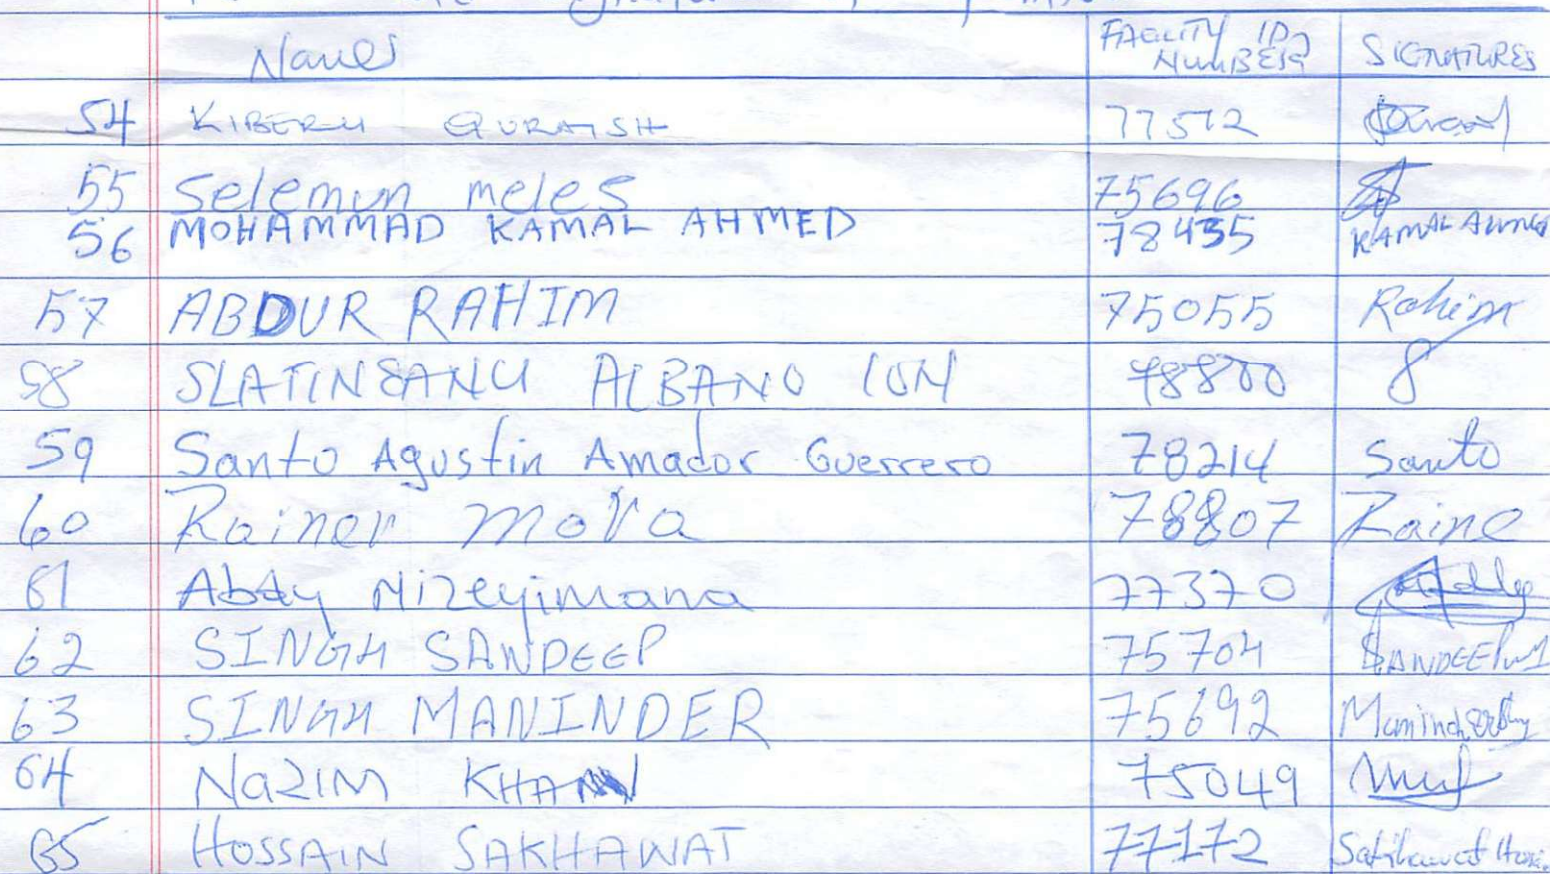 Names FACILITY ID NUMBER SIGNATURES
54 KIBERU QURAISH 77512
55 Selemun meles 75696
56 MOHAMMAD KAMAL AHMED 78435 KAMAL AHMED
57 ABDUR RAHIM 75055 Rahim
58 SLATINEANU ALBANO ION 78800
59 Santo Agustin Amador Guerrero 78214 Santo
60 Rainer Mora 78807 Raine
61 Abdy Nizeyimana 77370
62 SINGH SANDEEP 75704 SANDEEP
63 SINGH MANINDER 75692 Maninder
64 NaZIM KHAN 75049
65 HOSSAIN SAKHAWAT 77172